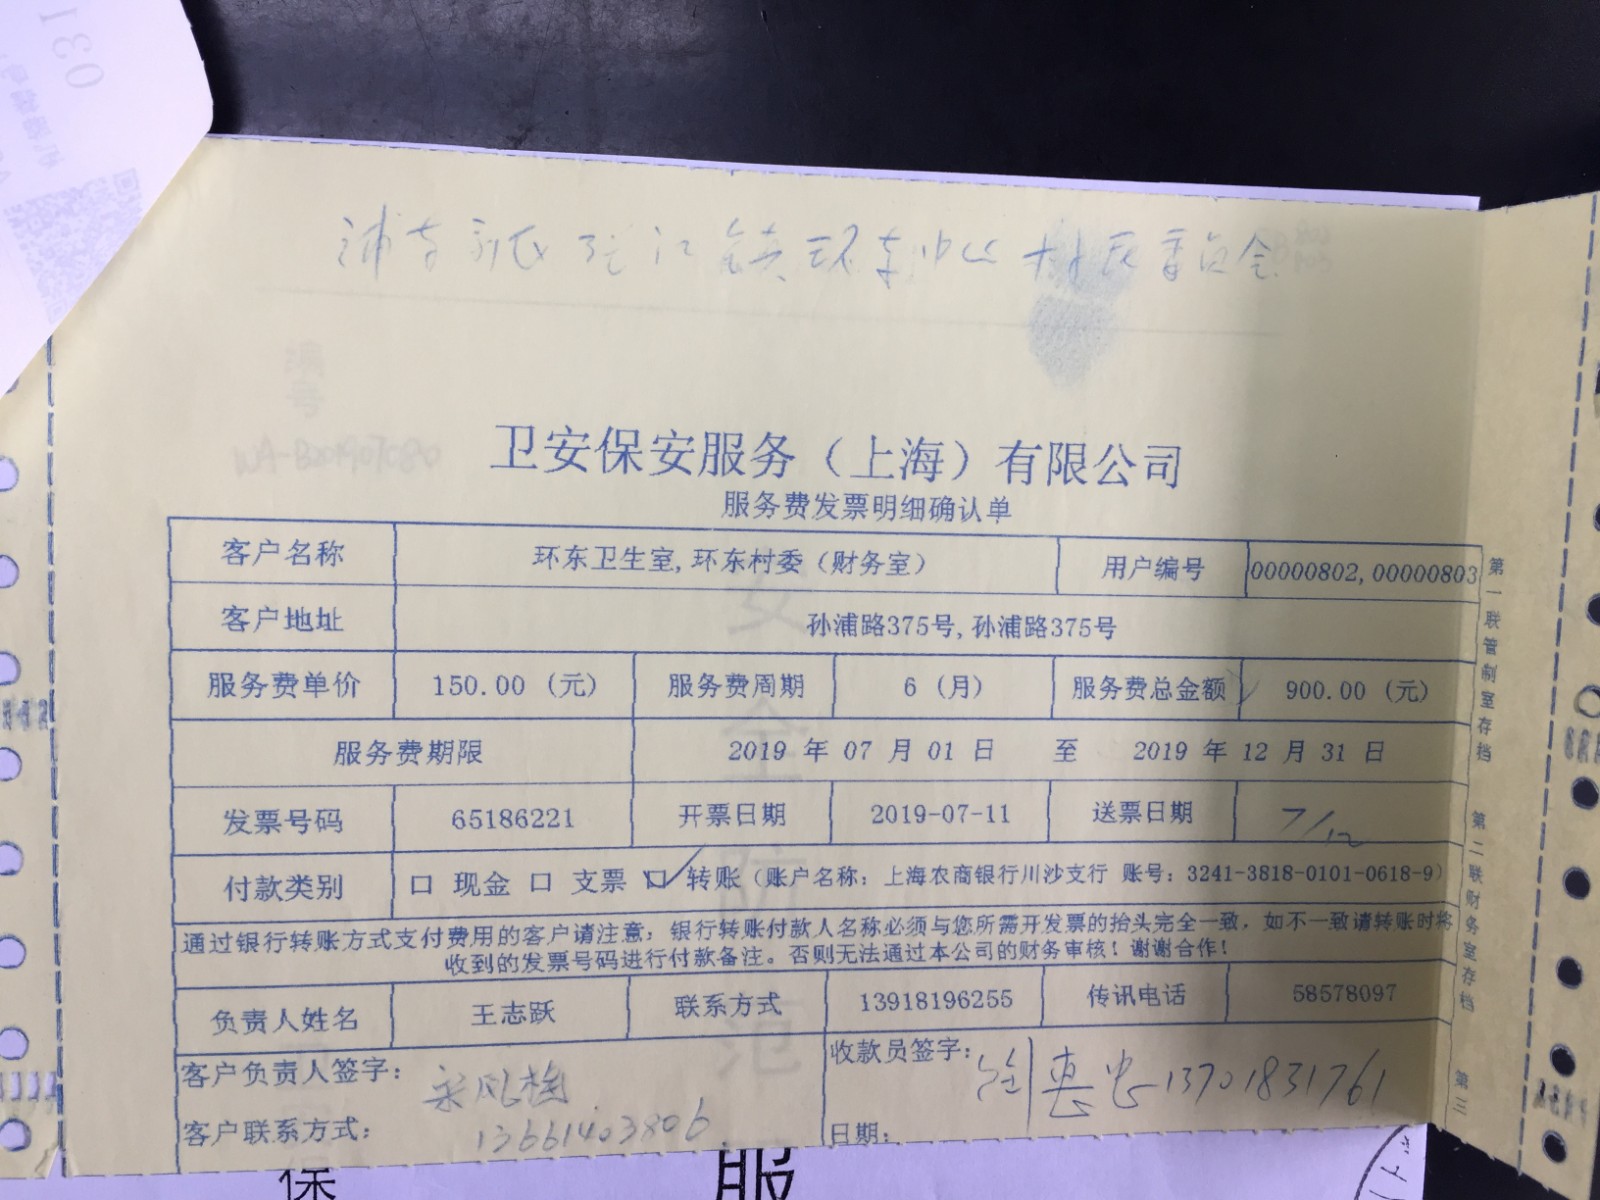 浦东新区张江镇环东中心村村民委员会
编号
WA-B201907080
卫安保安服务（上海）有限公司
服务费发票明细确认单
客户名称 环东卫生室,环东村委（财务室） 用户编号 00000802,00000803
客户地址 孙浦路375号,孙浦路375号
服务费单价 150.00（元） 服务费周期 6（月） 服务费总金额 900.00（元）
服务费期限 2019 年 07 月 01 日 至 2019 年 12 月 31 日
发票号码 65186221 开票日期 2019-07-11 送票日期 7/12
付款类别 口 现金 口 支票 口 转账（账户名称：上海农商银行川沙支行 账号：3241-3818-0101-0618-9）
通过银行转账方式支付费用的客户请注意：银行转账付款人名称必须与您所需开发票的抬头完全一致，如不一致请转账时将
收到的发票号码进行付款备注。否则无法通过本公司的财务审核！谢谢合作！
负责人姓名 王志跃 联系方式 13918196255 传讯电话 58578097
客户负责人签字： 收款员签字： 13701831761
客户联系方式： 13661403806 日期：
第一联管制室存档
第二联财务室存档
第三
安全防范
保
服
031